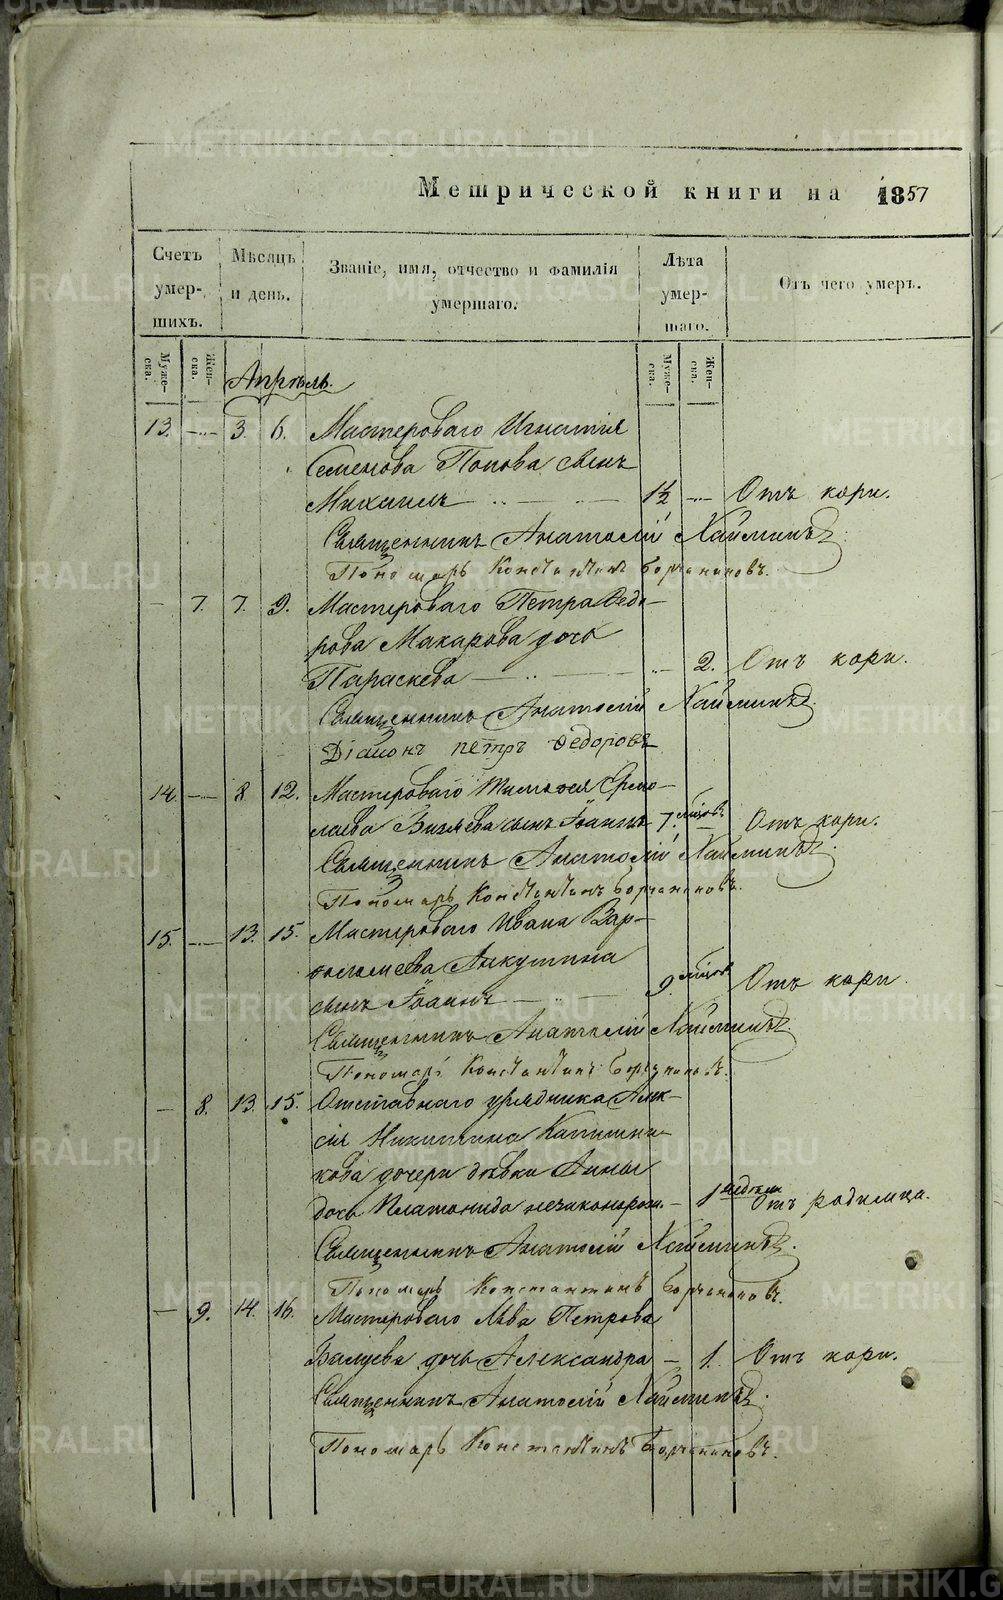 Метрической книги на 1857
Счетъ умер-шихъ.
Мѣсяцъ и день.
Званіе, имя, отчество и фамилія умершаго.
Лѣта умер-шаго.
Отъ чего умеръ.
Муже-ска.
Жен-ска.
Муже-ска.
Жен-ска.
Апрѣль.
13. — 3. 6. Мастероваго Игнатія
Семенова Попова сынъ
Михаилъ — 1½ — Отъ кори.
Священникъ Анатолій Хайминъ
Пономарь Константинъ Борчаниновъ.
— 7. 7. 9. Мастероваго Петра Ѳедо-
рова Макарова дочь
Параскева — 2. Отъ кори.
Священникъ Анатолій Хайминъ
Діаконъ Петръ Федоровъ
14. — 8 12. Мастероваго Тимоѳея Ермо-
лаева сынъ Іоаннъ 7. мѣсяцовъ — Отъ кори.
Священникъ Анатолій Хайминъ
Пономарь Константинъ Борчаниновъ.
15. — 13. 15. Мастероваго Ивана Вар-
ѳоломеева Анкушина
сынъ Іоаннъ — 9. мѣсяцовъ Отъ кори
Священникъ Анатолій Хайминъ
Пономарь Константинъ Борчаниновъ.
— 8. 13. 15. Отставнаго урядника Алек-
сія Никитина
дочери дѣвки Анны
дочь Платонида незаконнорож. — 1 недѣли Отъ родимца.
Священникъ Анатолій Хайминъ
Пономарь Константинъ Борчаниновъ.
— 9. 14. 16. Мастероваго Льва Петрова
дочь Александра — 1. Отъ кори.
Священникъ Анатолій Хайминъ
Пономарь Константинъ Борчаниновъ.
METRIKI.GASO-URAL.RU